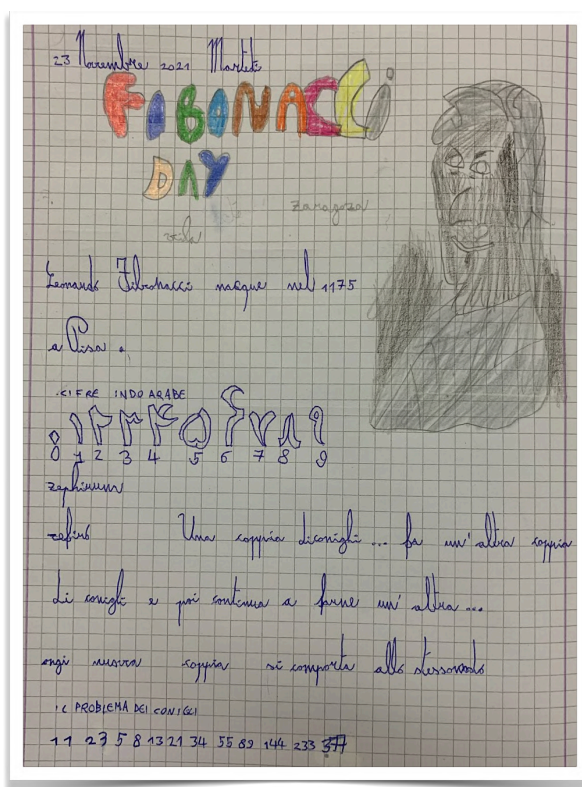 23 Novembre 2021 Martedì
FIBONACCI
DAY
Zaragoza
Leonardo Fibonacci nacque nel 1175
a Pisa.
CIFRE INDOARABE
٠ ١ ٢ ٣ ۴ ٥ ٦ ٧ ٨ ٩
0 1 2 3 4 5 6 7 8 9
zephirum
zefiro Una coppia di conigli ... fa un'altra coppia
di conigli e poi continua a farne un'altra ...
ongi nuova coppia si comporta allo stesso modo
IL PROBLEMA DEI CONIGLI
1 1 2 3 5 8 13 21 34 55 89 144 233 377